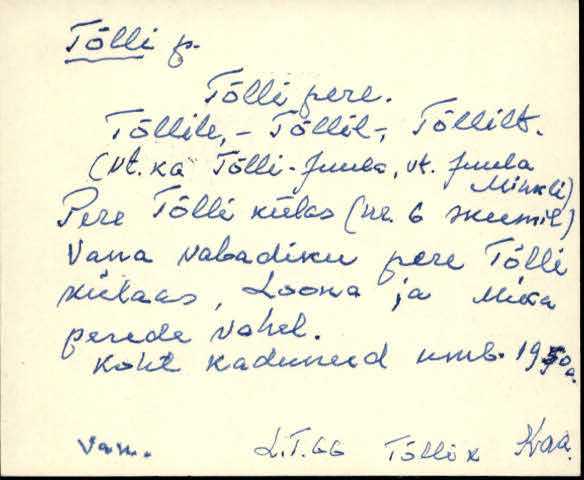 Tõlli p.
Tõlli pere.
Tõllile, - Tõllil -, Tõllilt.
(vt. ka Tõlli-Juula, vt. Juula
Mihkli)
Pere Tõlli külas (nr. 6 skeemil)
Vana vabadiku pere Tõlli
külaas, Loona ja Mika
perede vahel.
Koht kadunud umb. 1950 a.
Van. L.T. 66 Tõlli k Kaa.